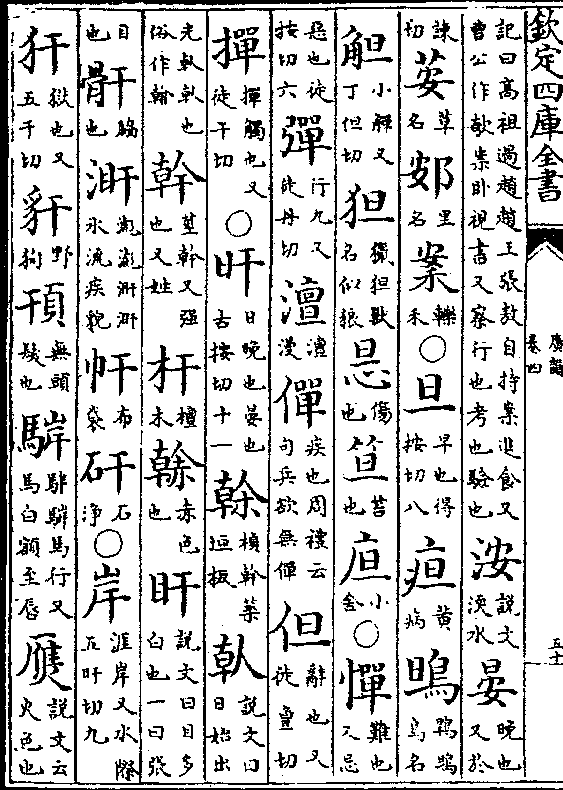 欽定四庫全書
廣韻
卷四
五十
記曰高祖過趙趙王張敖自持案進食又
曹公作欹案卧視書又察行也考也驗也 洝 說文渜水 晏 晚也又於
諫切 荌 草名 䢿 里名 案 轢禾 ○ 旦 早也得按切八 疸 黃病 鴠 鶡鴠鳥名
觛 小觶又丁但切 狚 獦狚獸名似狼 㫜 傷也 笪 笞也 㡺 小舍 ○ 憚 難也又忌
惡也徒按切六 彈 行丸又徒丹切 澶 澶漫 僤 疾也周禮云句兵欲無僤 但 辭也又徒亶切
撣 撣觸也又徒干切 ○ 旰 日晚也晏也古按切十一 榦 楨榦築垣板 倝 說文曰日始出
光倝倝也俗作幹 幹 莖幹又強也又姓 杆 檀木 䮧 赤色也 盰 說文曰目多白也一曰張
目也 骭 脇也 汗 瀚瀚汗汗水流疾貌 㠴 布袋 矸 石淨 ○ 岸 涯岸又水際五旰切九
犴 獄也又五干切 豻 野狗 頇 無頭髮也 駻 馬行又馬白額至唇 䧹 說文云火色也